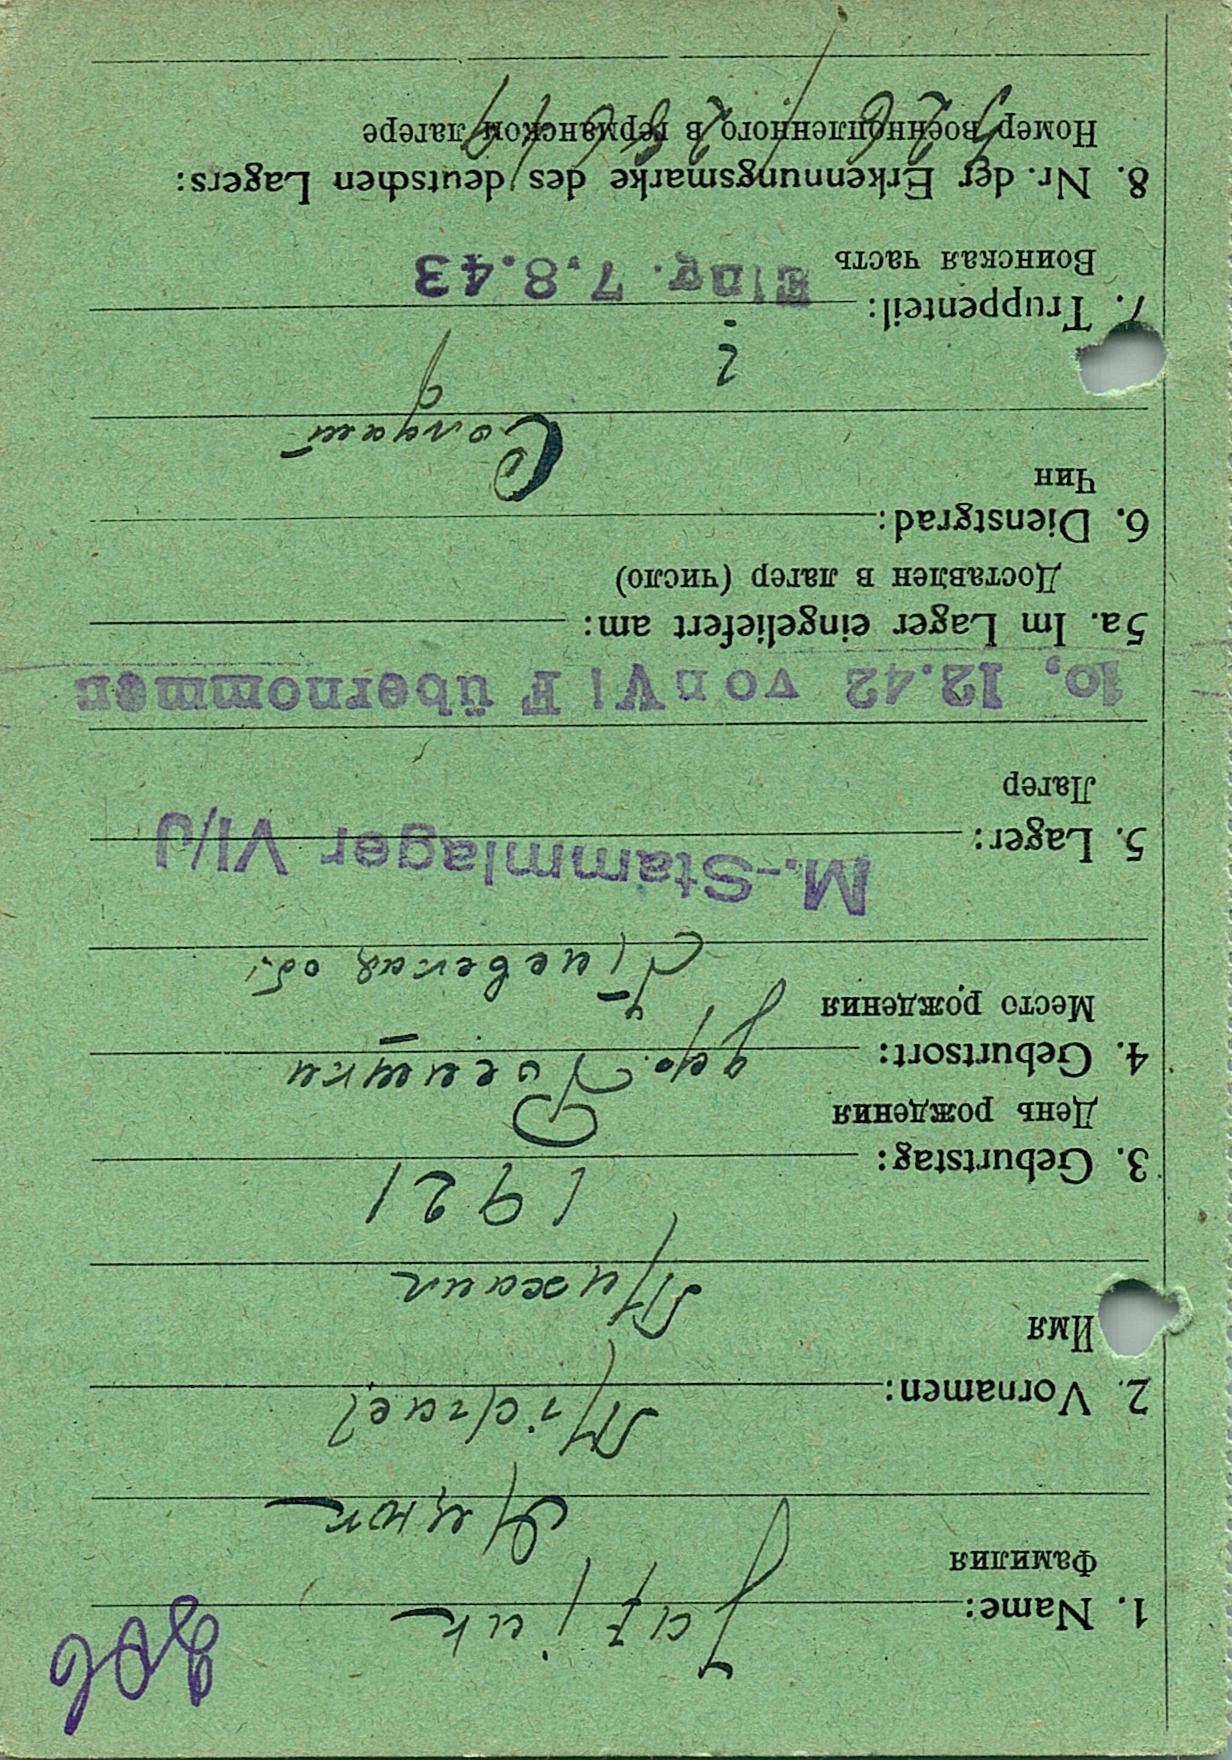 806
1. Name: Jazjuk
Фамилия Яцюк
Michael
2. Vornamen:
Имя
Михаил
1921
3. Geburtstag:
День рождения
4. Geburtsort: дер.
Место рождения
Киевская об.
M.-Stammlager VI/J
5. Lager:
Лагер
10. 12.42 von VI F übernommen
5a. Im Lager eingeliefert am:
Доставлен в лагер (число)
6. Dienstgrad:
Чин
Солдат
7. Truppenteil:
Воинская часть
Eing. 7.8.43
8. Nr. der Erkennungsmarke des deutschen Lagers:
Номер военнопленного в германской лагере